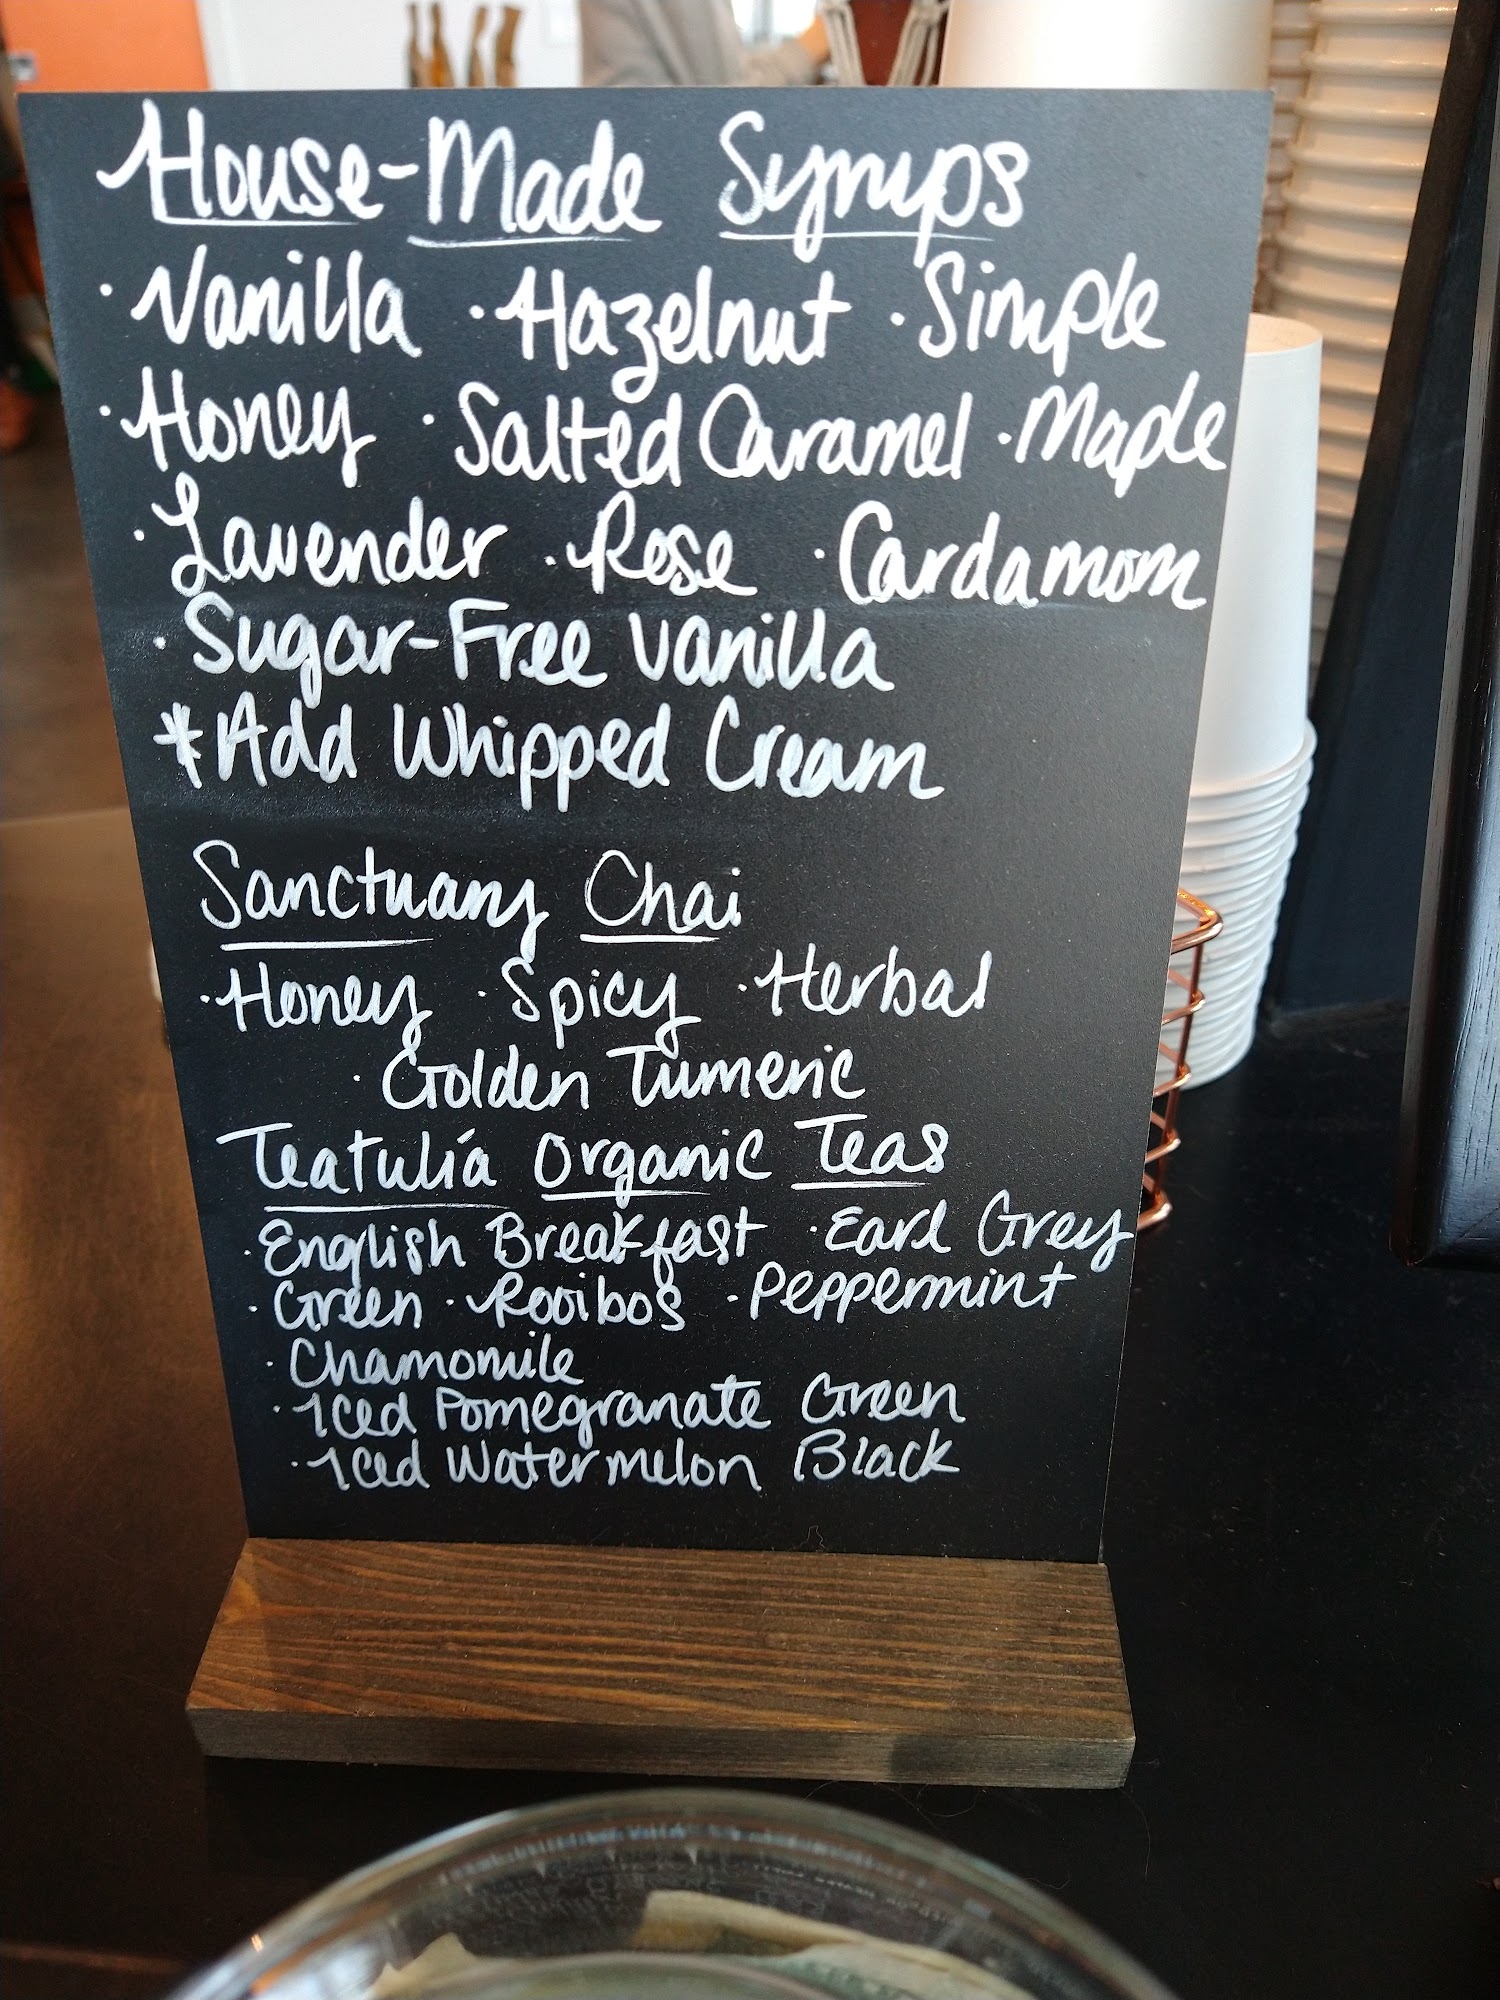 House-Made Syrups
· Vanilla · Hazelnut · Simple
· Honey · Salted Caramel · Maple
· Lavender · Rose · Cardamom
· Sugar-Free Vanilla
*Add Whipped Cream
Sanctuary Chai
· Honey · Spicy · Herbal
· Golden Tumeric
Teatulia Organic Teas
· English Breakfast · Earl Grey
· Green · Rooibos · Peppermint
· Chamomile
· Iced Pomegranate Green
· Iced Watermelon Black